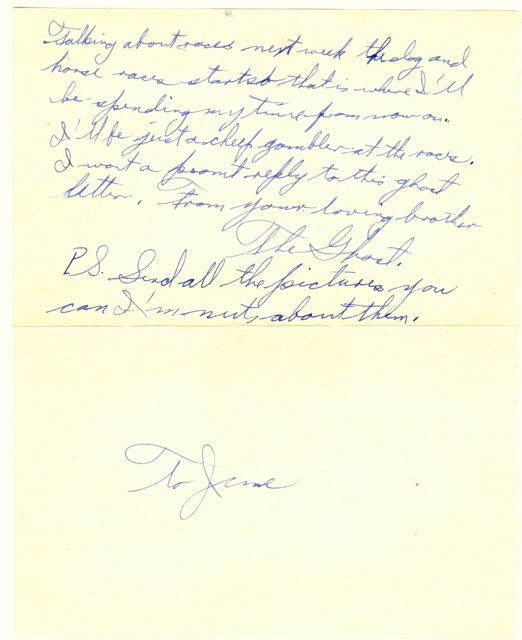 Talking about races next week the dog and
horse races starts that is where I'll
be spending my time from now on.
I'll be just a cheep gambler at the races.
I want a promt reply to this ghost
letter. From your loving brother
The Ghost.
P.S. Send all the pictures you
can I'm nuts about them.
To